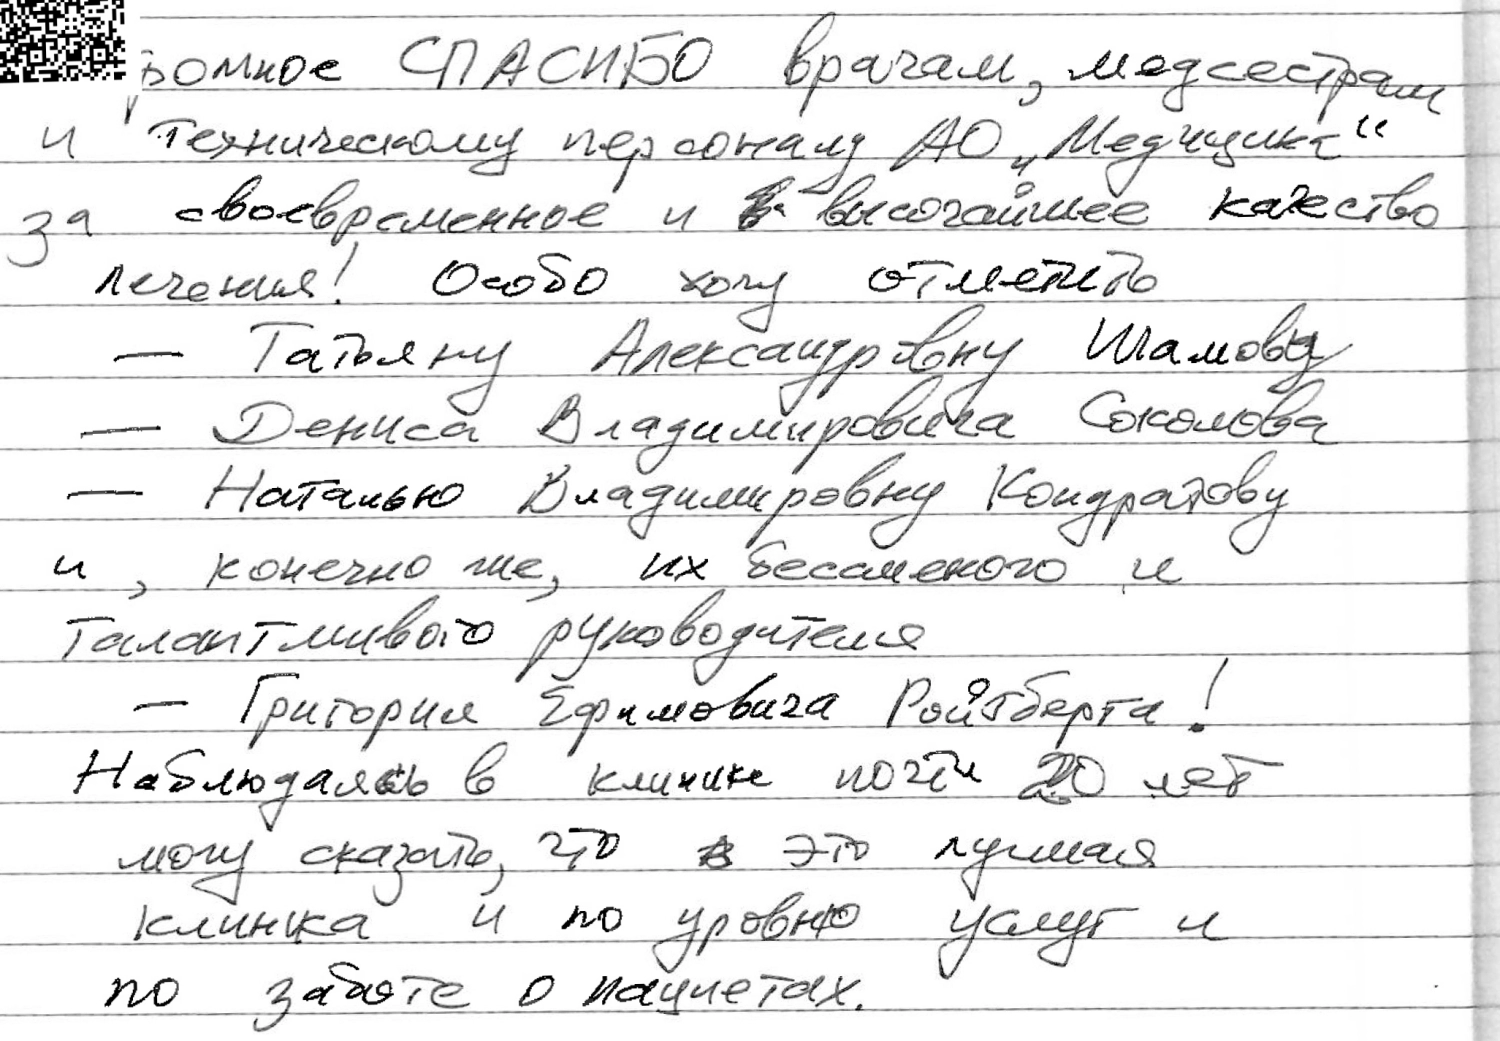 ромное СПАСИБО врачам, медсестрам
и техническому персоналу АО „Медицина“
за своевременное и высочайшее качество
лечения! Особо хочу отметить
— Татьяну Александровну Шамову
— Дениса Владимировича Соколова
— Наталью Владимировну Кондратову
и, конечно же, их бессменого и
талантливого руководителя
— Григория Ефимовича Ройтберга!
Наблюдаясь в клинике почти 20 лет
могу сказать, что это лучшая
клиника и по уровню услуг и
по заботе о пациетах.